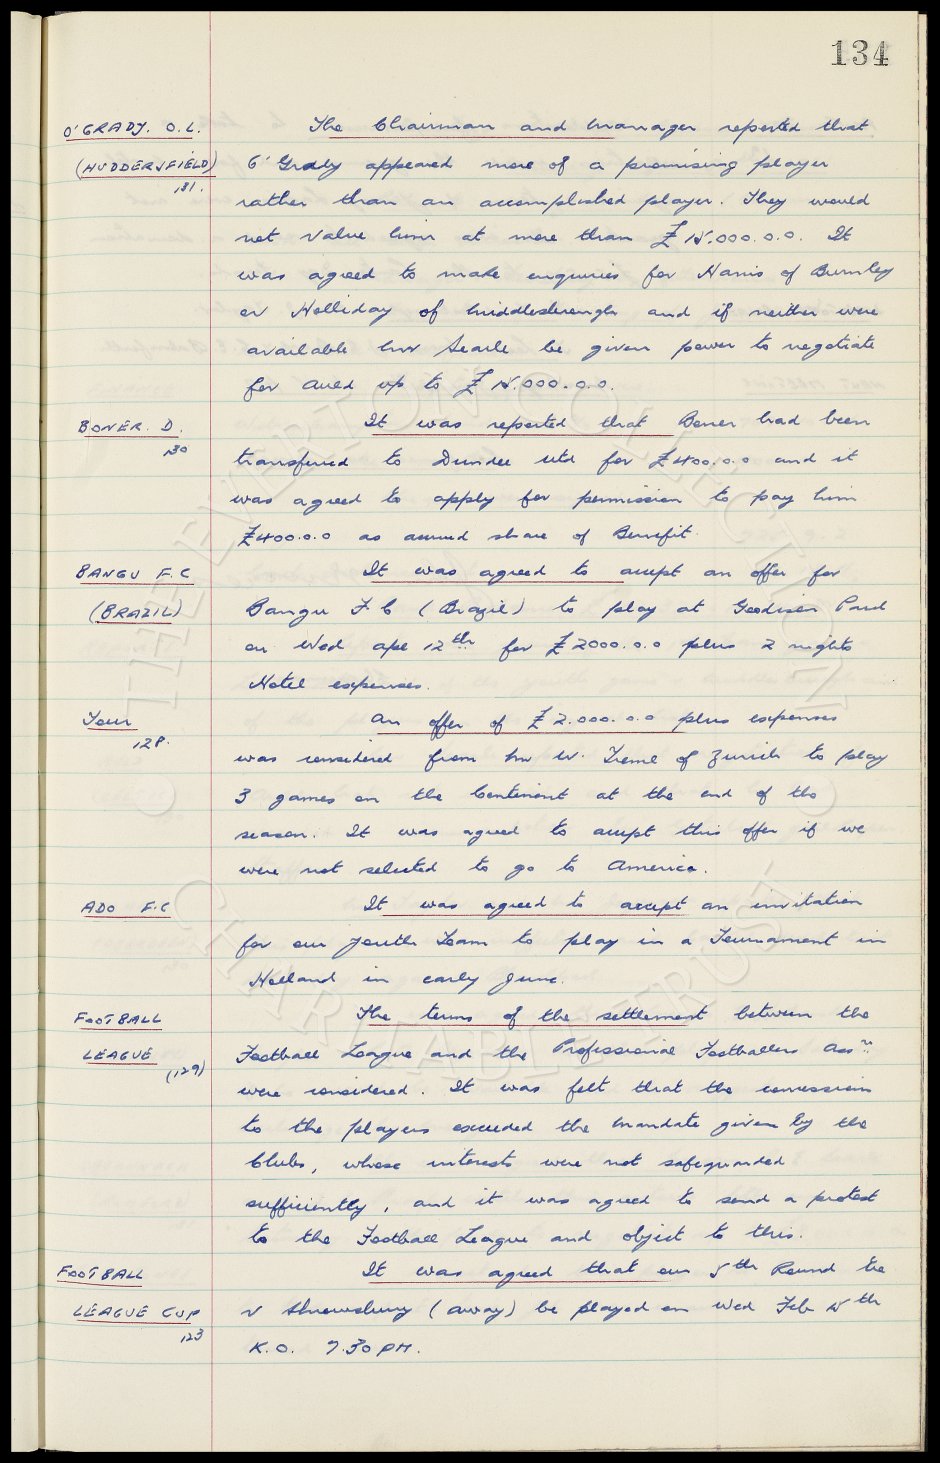 134
O'GRADY. O.L.
(HUDDERSFIELD)
131.
The Chairman and Manager reported that
O'Grady appeared more of a promising player
rather than an accomplished player. They would
not value him at more than £15.000.0.0. It
was agreed to make enquiries for Harris of Burnley
or Holliday of Middlesbrough and if neither were
available Mr Searle be given power to negotiate
for Auld up to £15.000.0.0.
BONER. D.
130
It was reported that Boner had been
transferred to Dundee Utd for £400.0.0 and it
was agreed to apply for permission to pay him
£400.0.0 as accrued share of Benefit.
BANGU F.C
(BRAZIL)
It was agreed to accept an offer for
Bangu F.C (Brazil) to play at Goodison Park
on Wed Apl 12th for £2000.0.0 plus 2 nights
Hotel expenses.
Tour
128.
An offer of £2.000.0.0 plus expenses
was considered from Mr W. of Zurich to play
3 games on the Continent at the end of the
season. It was agreed to accept this offer if we
were not selected to go to America.
ADO F.C
It was agreed to accept an invitation
for our Youth Team to play in a Tournament in
Holland in early June.
FOOTBALL
LEAGUE
(129)
The terms of the settlement between the
Football League and the Professional Footballers Assn.
were considered. It was felt that the concession
to the players exceeded the Mandate given by the
Clubs, whose interests were not safeguarded
sufficiently, and it was agreed to send a protest
to the Football League and object to this.
FOOTBALL
LEAGUE CUP
123
It was agreed that our 5th Round tie
v Shrewsbury (away) be played on Wed Feb 15th
K.O. 7.30 PM.
THE EVERTON COLLECTION
CHARITABLE TRUST